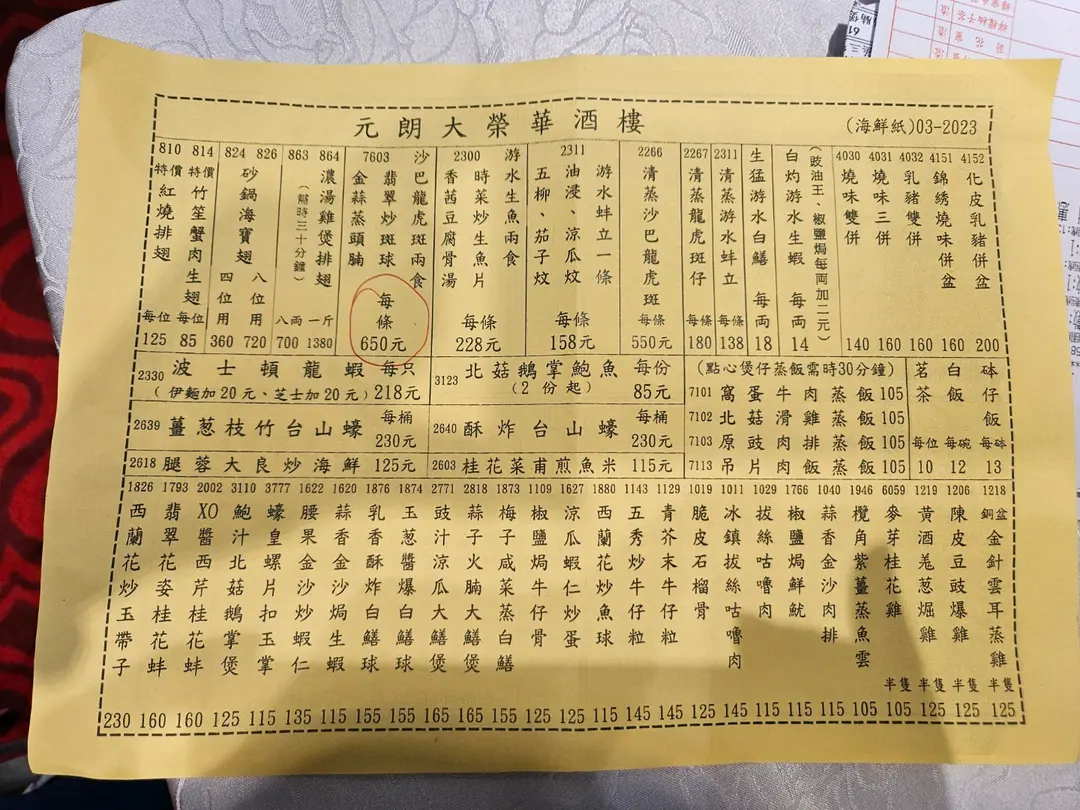 元朗大榮華酒樓
(海鮮紙)03-2023
810 特價 紅燒排翅 每位 125
814 特價 竹笙蟹肉生翅 每位 85
824 826
砂鍋海寶翅
四位用 360
八位用 720
863 864
濃湯雞煲排翅
(需時三十分鐘)
八兩 700
一斤 1380
7603
沙巴龍虎斑兩食
翡翠炒斑球
金蒜蒸頭腩
每條
650元
2300
游水生魚兩食
時菜炒生魚片
香茜豆腐骨湯
每條
228元
2311
游水蚌立一條
油浸、涼瓜炆
五柳、茄子炆
每條
158元
2266
清蒸沙巴龍虎斑
每條
550元
2267 清蒸龍虎斑仔 每條 180
2311 清蒸游水蚌立 每條 138
生猛游水白鱔 每両 18
白灼游水生蝦 每両 14
(豉油王、椒鹽焗每両加二元)
4030 燒味雙併 140
4031 燒味三併 160
4032 乳豬雙併 160
4151 錦綉燒味併盆 160
4152 化皮乳豬併盆 200
2330 波士頓龍蝦 每只
(伊麵加20元、芝士加20元) 218元
3123 北菇鵝掌鮑魚 每份
(2份起) 85元
2639 薑葱枝竹台山蠔 每桶 230元
2640 酥炸台山蠔 每桶 230元
2618 腿蓉大良炒海鮮 125元
2603 桂花菜甫煎魚米 115元
(點心煲仔蒸飯需時30分鐘)
7101 窩蛋牛肉蒸飯 105
7102 北菇滑雞蒸飯 105
7103 原豉肉排蒸飯 105
7113 吊片肉飯蒸飯 105
茗茶 每位 10
白飯 每碗 12
砵仔飯 每砵 13
1826 西蘭花炒玉帶子 230
1793 翡翠花姿桂花蚌 160
2002 XO醬西芹桂花蚌 160
3110 鮑汁北菇鵝掌煲 125
3777 蠔皇螺片扣玉掌 115
1622 腰果金沙炒蝦仁 135
1620 蒜香金沙焗生蝦 115
1876 乳香酥炸白鱔球 155
1874 玉葱醬爆白鱔球 155
2771 豉汁涼瓜大鱔煲 165
2818 蒜子火腩大鱔煲 165
1873 梅子咸菜蒸白鱔 155
1109 椒鹽焗牛仔骨 125
1627 涼瓜蝦仁炒蛋 125
1880 西蘭花炒魚球 115
1143 五秀炒牛仔粒 145
1129 青芥末牛仔粒 145
1019 脆皮石榴骨 125
1011 冰鎮拔絲咕嚕肉 145
1029 拔絲咕嚕肉 115
1766 椒鹽焗鮮魷 115
1040 蒜香金沙肉排 115
1946 欖角紫薑蒸魚雲 105
6059 麥芽桂花雞 半隻 105
1219 黃酒羗葱焗雞 半隻 125
1206 陳皮豆豉爆雞 半隻 125
1218 銅盆金針雲耳蒸雞 半隻 125